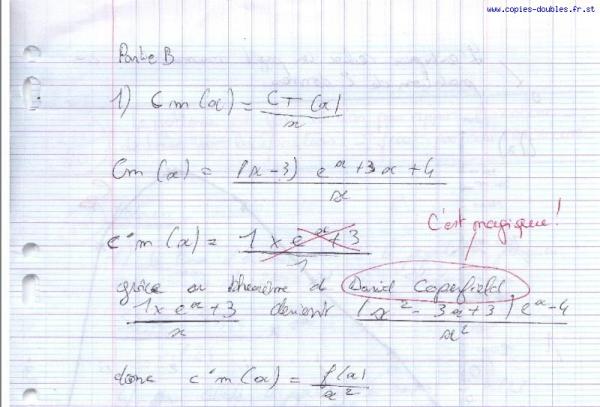 www.copies-doubles.fr.st
Partie B
1) Cm(x) = CT(x) / x
Cm(x) = (x-3) e^x + 3x + 4 / x
C'est magique !
c'm(x) = 1 x e^x + 3 / 1
grâce au théorème d David Coperfield,
1 x e^x + 3 / x devient (x² - 3x + 3) e^x - 4 / x²
donc c'm(x) = f(x) / x²